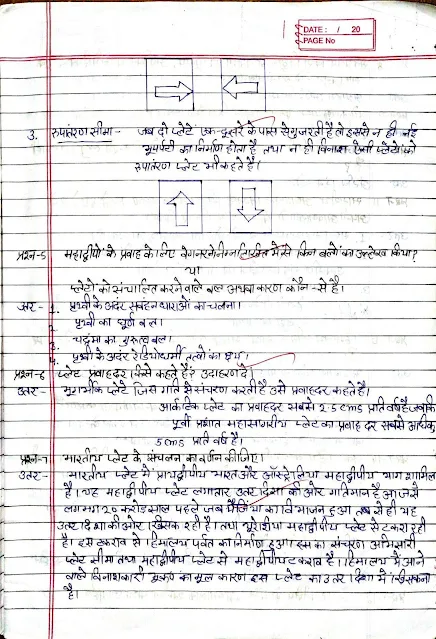 DATE: / 20
PAGE No
3. रुपांतरण सीमा - जब दो प्लेटें एक-दूसरे के पास से गुजरती है तो इससे न ही नई
भूपर्पटी का निर्माण होता है तथा न ही विनाश ऐसी प्लेटो को
रुपांतरण प्लेट भी कहते है।
प्रश्न-5 महाद्वीपों के प्रवाह के लिए वेगनर ने निम्नलिखित में से किन बलों का उल्लेख किया?
या
प्लेटों को संचालित करने वाले बल अथवा कारण कौन-से है।
उत्तर- 1. पृथ्वी के अदंर संवहन धाराओं का चलना।
2. पृथ्वी का घूर्ण बल।
3. चद्रंमा का गुरुत्व बल।
4. पृथ्वी के अदंर रेडियोधर्मी तत्वों का क्षय।
प्रश्न-6 प्लेट प्रवाहदर किसे कहते है? उदाहरण दे।
उत्तर- भूगर्भीक प्लेटे जिस गति से संचरण करती है उसे प्रवाहदर कहते है।
आर्कटिक प्लेट का प्रवाहदर सबसे 2.5 cms प्रति वर्ष है जबकि
पूर्वी प्रशांत महासागरीय प्लेट का प्रवाह दर सबसे अधिक
5 cms प्रति वर्ष है।
प्रश्न-7 भारतीय प्लेट के संचलन का वर्णन कीजिए।
उत्तर- भारतीय प्लेट में प्रायद्वीपीय भारत और ऑस्ट्रेलिया महाद्वीपीय भाग शामिल
है। यह महाद्वीपीय प्लेट लगातार उत्तर दिशा की ओर गतिमान है आज से
लगभग 20 करोड साल पहले जब पैंजिया का विभाजन हुआ तब से ही यह
उत्तर दिशा की ओर खिसक रही है। तथा यूरेशीया महाद्वीपीय प्लेट से टकरा रही
है। इस टकराव से हिमालय पर्वत का निर्माण हुआ। इस का संचरण अभिसारी
प्लेट सीमा तथा महाद्वीपीय प्लेट से महाद्वीपीय टकराव है। हिमालय में आने
वाले विनाशकारी भूकंप का मूल कारण इस प्लेट का उत्तर दिशा में खिसकना
है।